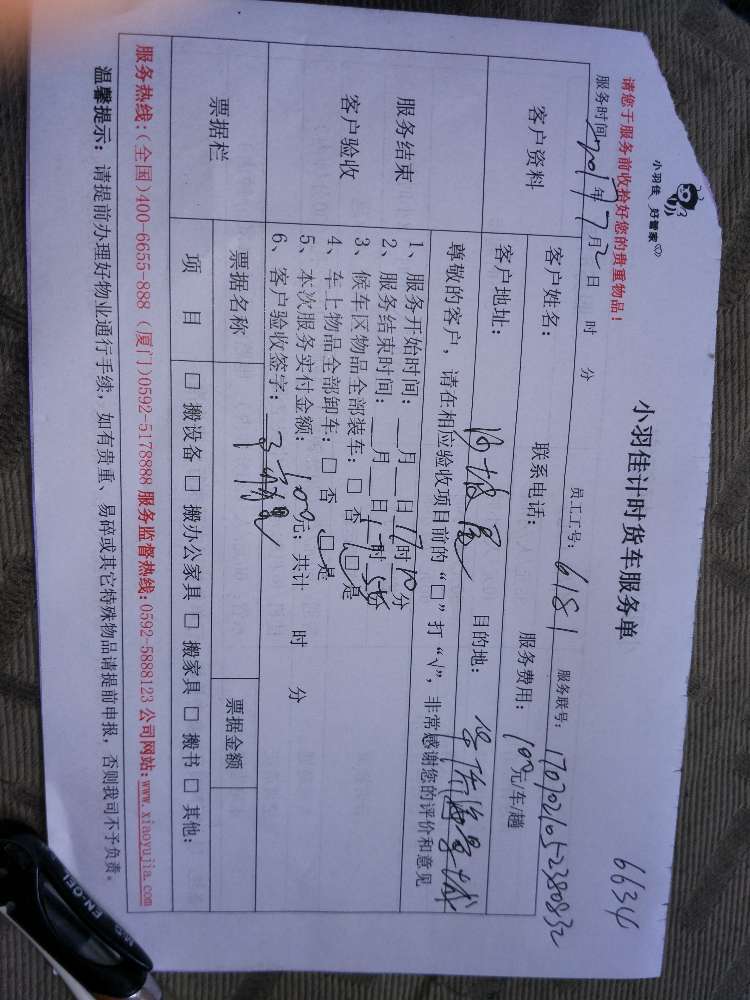 小羽佳 好管家
小羽佳计时货车服务单
6634
请您于服务前收拾好您的贵重物品！
服务时间: 2017年7月2日 时 分 员工工号: 6181 服务联号: 1707021052380832
客户资料
客户姓名: 联系电话: 服务费用: 100元/车/趟
客户地址: 目的地:
服务结束
客户验收
尊敬的客户，请在相应验收项目前的“□”打“√”，非常感谢您的评价和意见
1、服务开始时间: 月 日17时10分
2、服务结束时间: 月 日17时55分
3、候车区物品全部装车: □ 否 □ 是
4、车上物品全部卸车: □ 否 □ 是
5、本次服务实付金额: 100元; 共计 时 分
6、客户验收签字:
票据栏
票据名称 票据金额
项 目 □ 搬设备 □ 搬办公家具 □ 搬家具 □ 搬书 □ 其他:
服务热线:(全国)400-6655-888 (厦门)0592-5178888 服务监督热线:0592-5888123 公司网站:www.xiaoyujia.com
温馨提示: 请提前办理好物业通行手续，如有贵重、易碎或其它特殊物品请提前申报，否则我司不予负责。